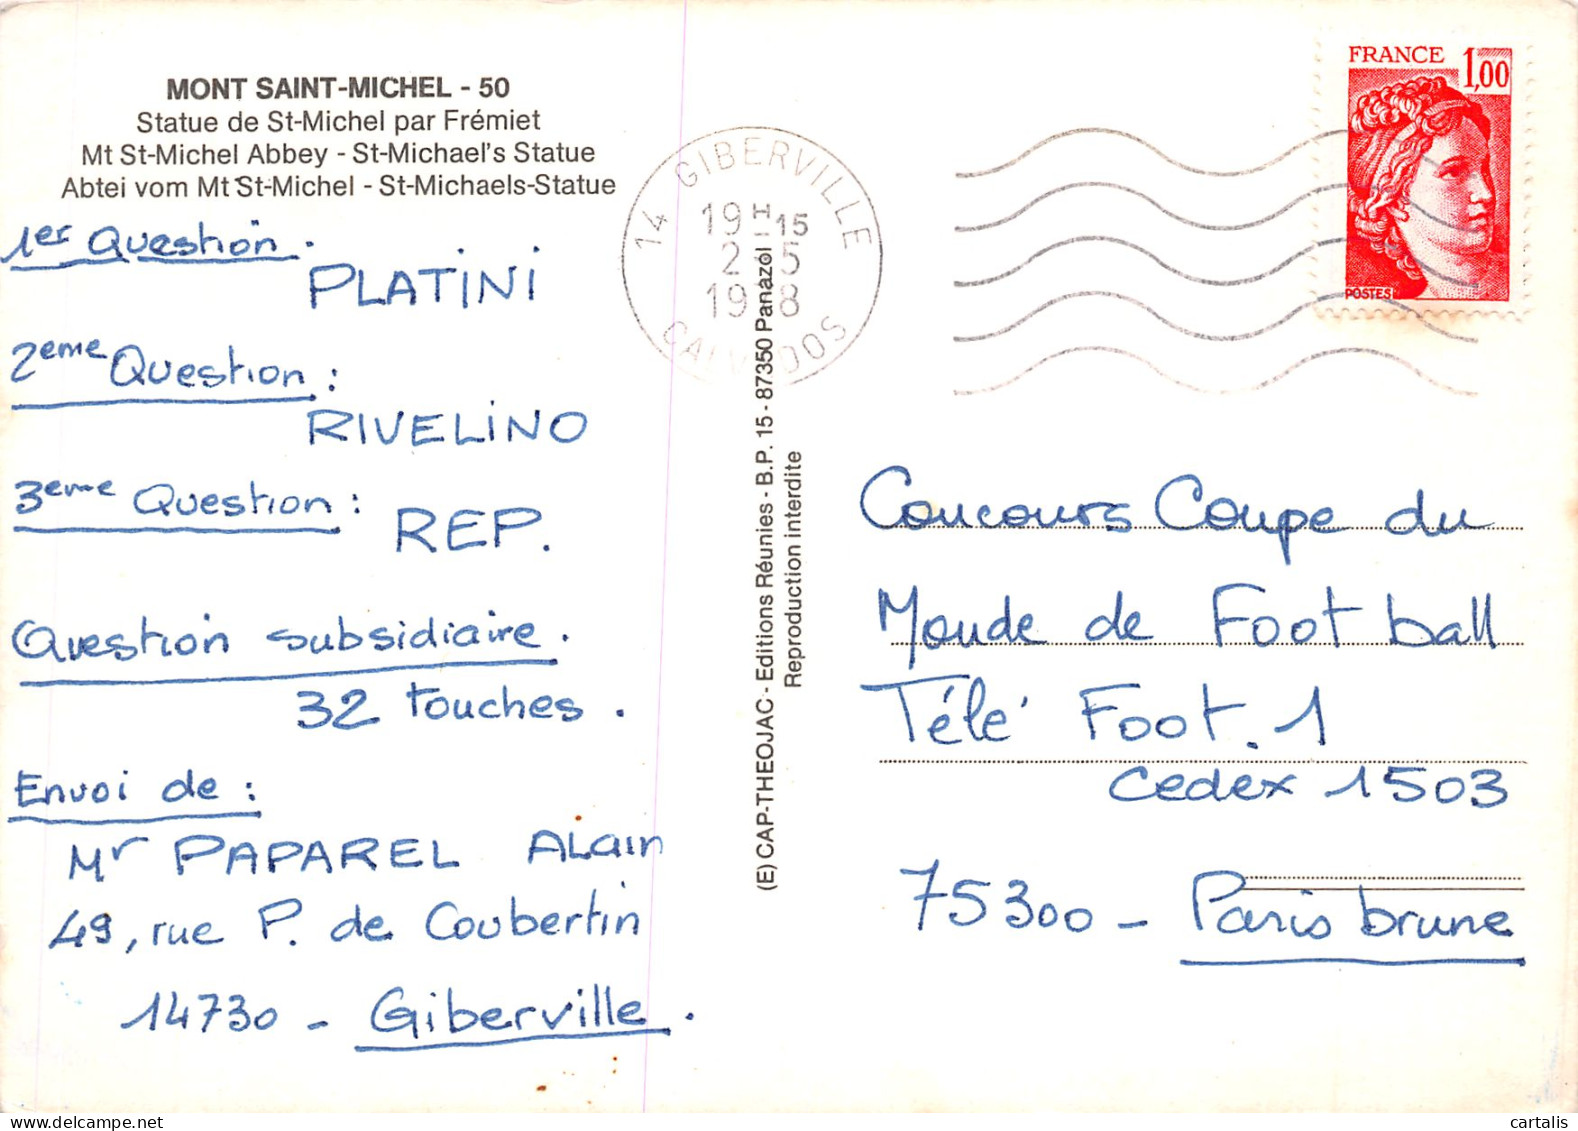 MONT SAINT-MICHEL - 50
Statue de St-Michel par Frémiet
Mt St-Michel Abbey - St-Michael's Statue
Abtei vom Mt St-Michel - St-Michaels-Statue
1er Question.
PLATINI
2eme Question :
RIVELINO
3eme Question :
REP.
Question subsidiaire.
32 touches.
Envoi de :
Mr PAPAREL Alain
49, rue P. de Coubertin
14730 - Giberville.
14 GIBERVILLE
19H15
2-5
1978
CALVADOS
(E) CAP-THEOJAC - Editions Réunies - B.P. 15 - 87350 Panazol
Reproduction interdite
FRANCE 1,00
POSTES
Concours Coupe du
Monde de Foot ball
Télé Foot.1
Cedex 1503
75300 - Paris brune
cartalis